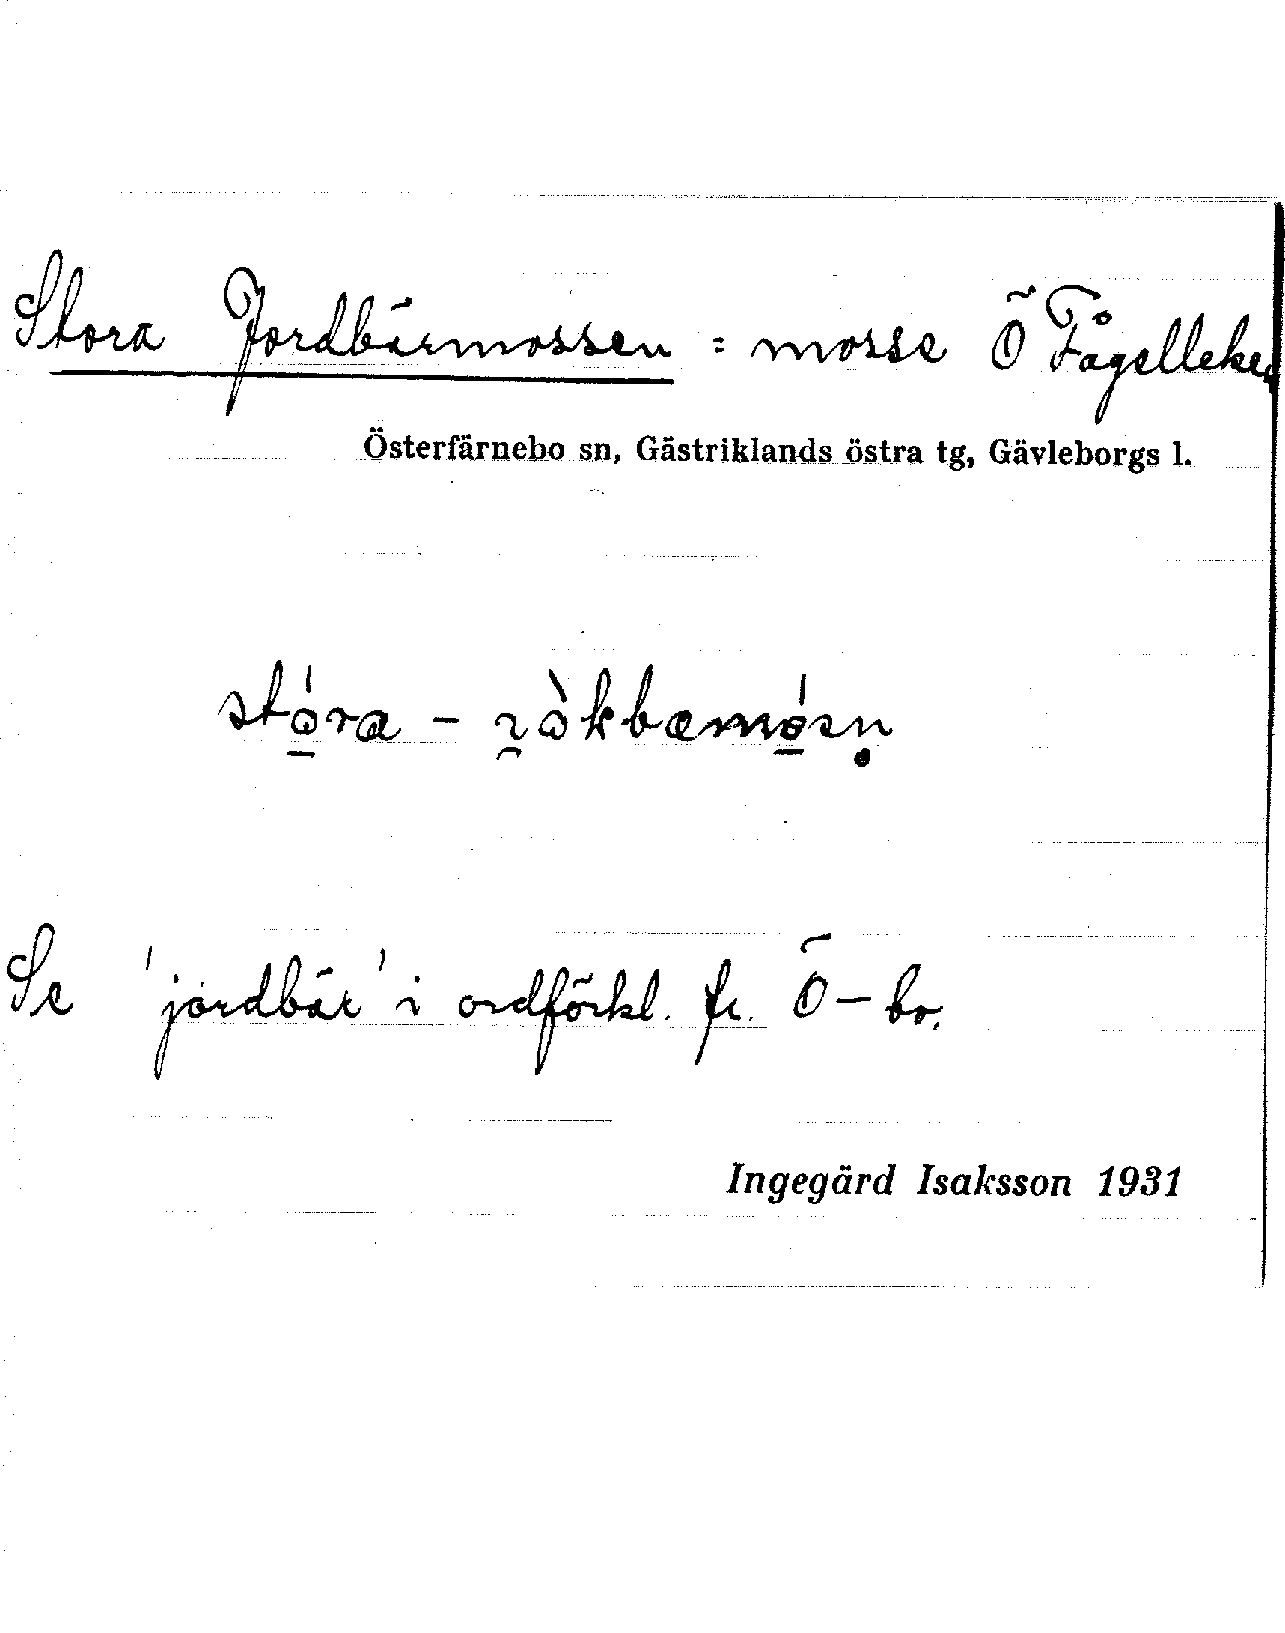 Stora Jordbärmossen : mosse Ö Fågelleken
Österfärnebo sn, Gästriklands östra tg, Gävleborgs l.
Se 'jordbär' i ordförkl. fr. Ö-bo.
Ingegärd Isaksson 1931